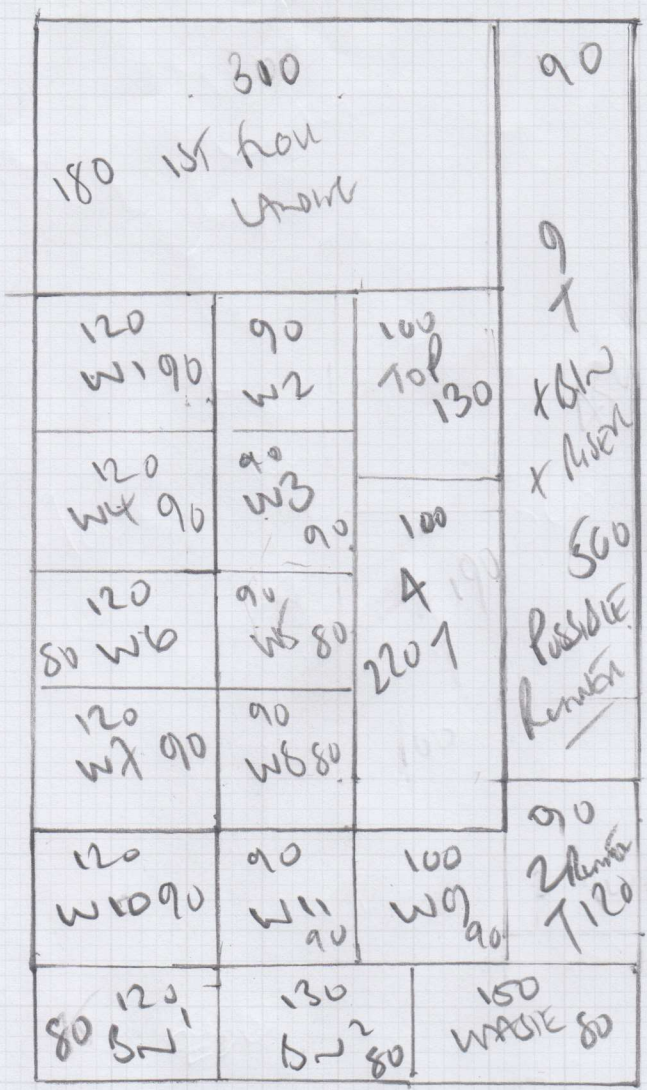 300
180 1ST FLOOR
LANDING
90
9
T
X BIN
X RISER
500
POSSIBLE
RUNNER
120
W1 90
90
W2
100
TOP
130
120
W4 90
90
W3
90
100
4
220 T
120
80 W6
90
W5 80
120
W7 90
90
W8 80
120
W10 90
90
W11
90
100
W9
90
90
2 RUNNER
T 120
120
80 BN 1
130
BN 2
80
150
WASTE 80